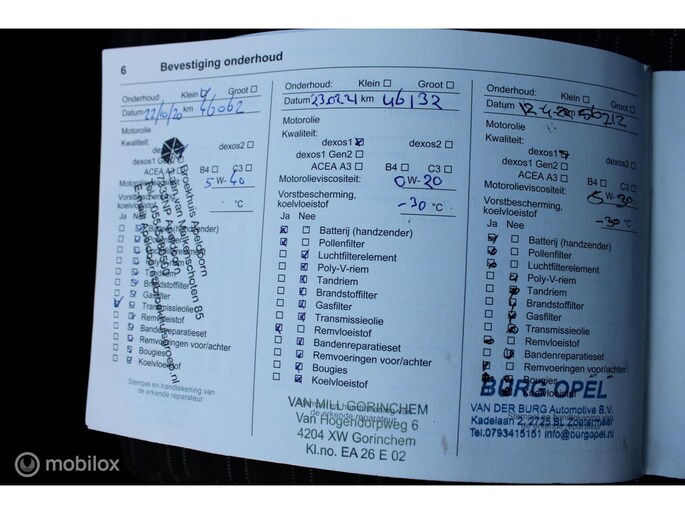 6 Bevestiging onderhoud
Onderhoud: Klein Groot
Datum 22/10/20 km 46062
Motorolie
Kwaliteit:
dexos1 dexos2
dexos1 Gen2
ACEA A3 B4 C3
Motorolieviscositeit:
5 W- 40
Vorstbescherming,
koelvloeistof °C
Ja Nee
Batterij (handzender)
Poly-V-riem
Tandriem
Brandstoffilter
Gasfilter
Transmissieolie
Remvloeistof
Bandenreparatieset
Remvoeringen voor/achter
Bougies
Koelvloeistof
Stempel en handtekening van
de erkende reparateur
Broekhuis Apeldoorn
Jan van Houtum Schoten 85
Onderhoud: Klein Groot
Datum 230221 km 46132
Motorolie
Kwaliteit:
dexos1 dexos2
dexos1 Gen2
ACEA A3 B4 C3
Motorolieviscositeit:
0 W- 20
Vorstbescherming,
koelvloeistof -30 °C
Ja Nee
Batterij (handzender)
Pollenfilter
Luchtfilterelement
Poly-V-riem
Tandriem
Brandstoffilter
Gasfilter
Transmissieolie
Remvloeistof
Bandenreparatieset
Remvoeringen voor/achter
Bougies
Koelvloeistof
VAN MILL GORINCHEM
de erkende reparateur
Van Hogendorpweg 6
4204 XW Gorinchem
Kl.no. EA 26 E 02
Onderhoud: Klein Groot
Datum km 56712
Motorolie
Kwaliteit:
dexos1 dexos2
dexos1 Gen2
ACEA A3 B4 C3
Motorolieviscositeit:
W- 30
Vorstbescherming,
koelvloeistof -30 °C
Ja Nee
Batterij (handzender)
Pollenfilter
Luchtfilterelement
Poly-V-riem
Tandriem
Brandstoffilter
Gasfilter
Transmissieolie
Remvloeistof
Bandenreparatieset
Remvoeringen voor/achter
Bougies
Koelvloeistof
BURG OPEL
VAN DER BURG Automotive B.V.
Kadelaan 2, 2725 BL Zoetermeer
Tel.0793415151 info@burgopel.nl
mobilox